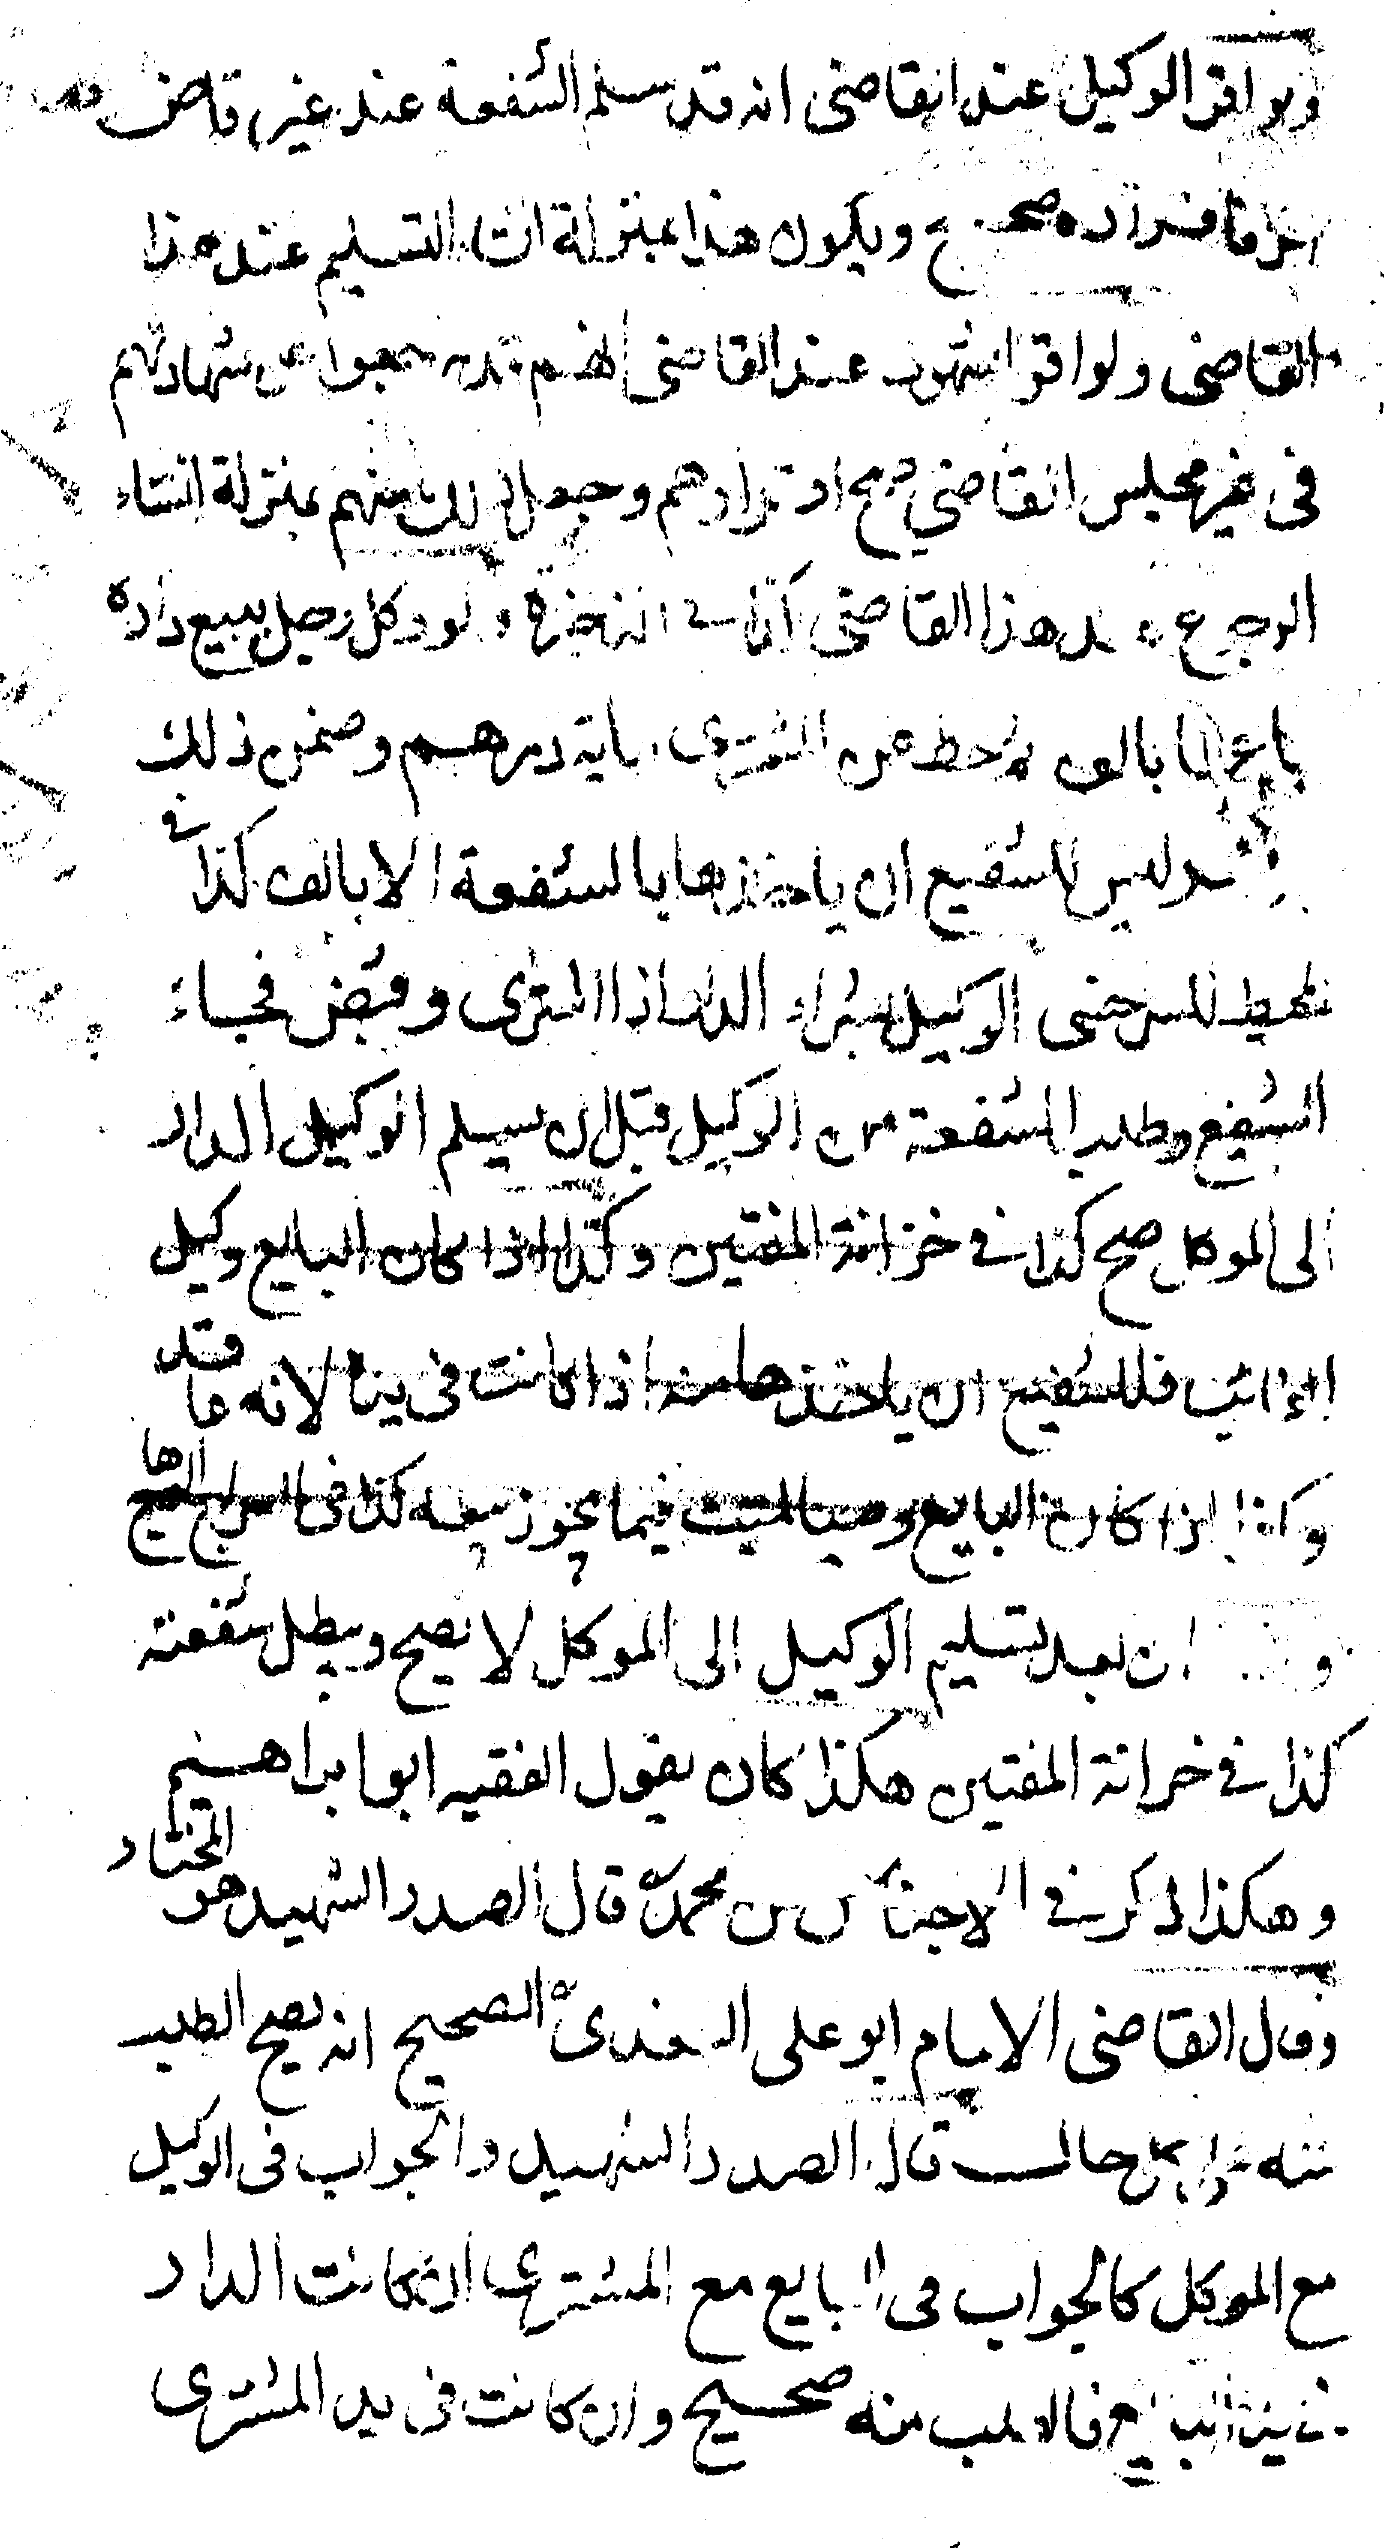 ولو اقر الوكيل عند القاضى انه قد سلم الشفعة عند غير قاض
اخر فاقراره صحيح ويكون هذا بمنزلة انشاء التسليم عند هذا
القاضى ولو اقر الشهود عند القاضى انهم قد رجعوا عن شهادتهم
فى غير مجلس القاضي صح اقرارهم وجعل ذلك منهم بمنزلة انشاء
الرجوع عند هذا القاضى كذا في الذخيرة ولو وكل رجل ببيع داره
باعها بالف ثم حط عن المشترى مائة درهم وضمن ذلك
ليس للشفيع ان ياخذها بالشفعة الا بالف كذا في
محيط السرخسى الوكيل بشراء الدار اذا اشترى وقبض فجاء
الشفيع وطلب الشفعة من الوكيل قبل ان يسلم الوكيل الدار
الى الموكل صح كذا في خزانة المفتين وكذا اذا كان البايع وكيل
الغائب فللشفيع ان ياخذها منه اذا كانت فى يده لانه عاقد
وكذا اذا كان البايع وصيا لميت فيما يجوز بيعه كذا فى السراج الوهاج
وان كان بعد تسليم الوكيل الى الموكل لا يصح ويبطل شفعته
كذا في خزانة المفتين هكذا كان يقول الفقيه ابو ابراهيم
وهكذا ذكر في الاجناس عن محمد قال الصدر الشهيد هو المختار
وقال القاضى الامام ابو على السغدى الصحيح انه يصح الطلب
منه على كل حال قال الصدر الشهيد والجواب فى الوكيل
مع الموكل كالجواب فى البايع مع المشترى ان كانت الدار
في يد البايع فالطلب منه صحيح وان كانت فى يد المشترى